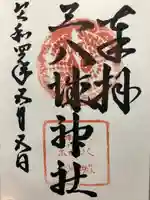 奉拝
三八城神社
令和四年五月五日